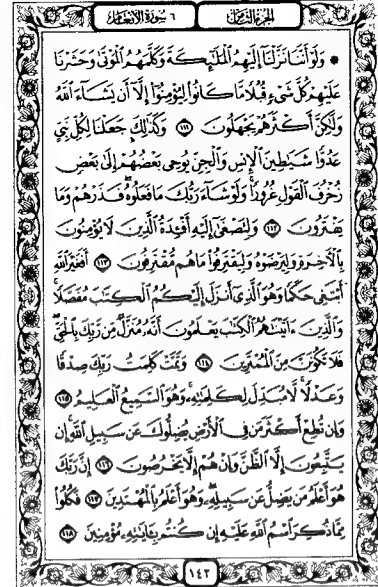 الجزء الثامن
٦ سورة الأنعام
۞ وَلَوْ أَنَّنَا نَزَّلْنَآ إِلَيْهِمُ ٱلْمَلَٰٓئِكَةَ وَكَلَّمَهُمُ ٱلْمَوْتَىٰ وَحَشَرْنَا
عَلَيْهِمْ كُلَّ شَىْءٍ قُبُلًا مَّا كَانُوا۟ لِيُؤْمِنُوٓا۟ إِلَّآ أَن يَشَآءَ ٱللَّهُ
وَلَٰكِنَّ أَكْثَرَهُمْ يَجْهَلُونَ ١١١ وَكَذَٰلِكَ جَعَلْنَا لِكُلِّ نَبِىٍّ
عَدُوًّا شَيَٰطِينَ ٱلْإِنسِ وَٱلْجِنِّ يُوحِى بَعْضُهُمْ إِلَىٰ بَعْضٍ
زُخْرُفَ ٱلْقَوْلِ غُرُورًا ۚ وَلَوْ شَآءَ رَبُّكَ مَا فَعَلُوهُ ۖ فَذَرْهُمْ وَمَا
يَفْتَرُونَ ١١٢ وَلِتَصْغَىٰٓ إِلَيْهِ أَفْـِٔدَةُ ٱلَّذِينَ لَا يُؤْمِنُونَ
بِٱلْءَاخِرَةِ وَلِيَرْضَوْهُ وَلِيَقْتَرِفُوا۟ مَا هُم مُّقْتَرِفُونَ ١١٣ أَفَغَيْرَ ٱللَّهِ
أَبْتَغِى حَكَمًا وَهُوَ ٱلَّذِىٓ أَنزَلَ إِلَيْكُمُ ٱلْكِتَٰبَ مُفَصَّلًا ۚ
وَٱلَّذِينَ ءَاتَيْنَٰهُمُ ٱلْكِتَٰبَ يَعْلَمُونَ أَنَّهُۥ مُنَزَّلٌ مِّن رَّبِّكَ بِٱلْحَقِّ ۖ
فَلَا تَكُونَنَّ مِنَ ٱلْمُمْتَرِينَ ١١٤ وَتَمَّتْ كَلِمَتُ رَبِّكَ صِدْقًا
وَعَدْلًا ۚ لَّا مُبَدِّلَ لِكَلِمَٰتِهِۦ ۚ وَهُوَ ٱلسَّمِيعُ ٱلْعَلِيمُ ١١٥
وَإِن تُطِعْ أَكْثَرَ مَن فِى ٱلْأَرْضِ يُضِلُّوكَ عَن سَبِيلِ ٱللَّهِ ۚ إِن
يَتَّبِعُونَ إِلَّا ٱلظَّنَّ وَإِنْ هُمْ إِلَّا يَخْرُصُونَ ١١٦ إِنَّ رَبَّكَ
هُوَ أَعْلَمُ مَن يَضِلُّ عَن سَبِيلِهِۦ ۖ وَهُوَ أَعْلَمُ بِٱلْمُهْتَدِينَ ١١٧ فَكُلُوا۟
مِمَّا ذُكِرَ ٱسْمُ ٱللَّهِ عَلَيْهِ إِن كُنتُم بِـَٔايَٰتِهِۦ مُؤْمِنِينَ ١١٨
١٤٢